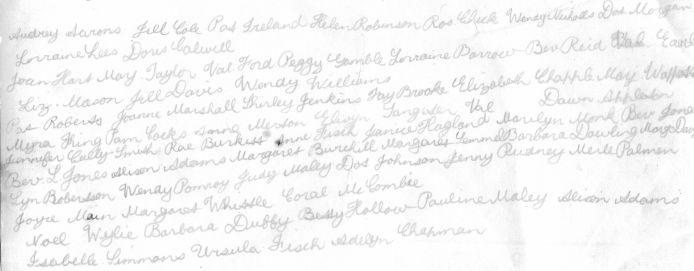 Audrey Aarons Jill Cole Pat Ireland Helen Robinson Ros Chick Wendy Nicholls Dot Morgan
Lorraine Lees Doris Calwell
Joan Hart Mary Taylor Val Ford Peggy Gamble Lorraine Barrow Bev Reid
Liz. Mason Jill Davis Wendy Williams
Pat Roberts Joanne Marshall Shirley Jenkins Fay Brooke Elizabeth Chapple May
Myrna Pam Cocks Merson Elwyn Val Dawn Appleton
Jennifer Cully-Smith Rae Burkitt Anne Fisch Janice Hagland Marilyn Monk Bev Jones
Bev. L Jones Alison Adams Margaret Burchill Margaret Barbara Dowling
Lyn Robertson Wendy Judy Maley Dot Johnson Jenny Merle Palmer
Joyce Main Margaret Whistle Coral McCombie
Noel Wylie Barbara Dubby Betty Hollow Pauline Maley Alison Adams
Isabelle Simmons Ursula Fisch Adelyn Chapman